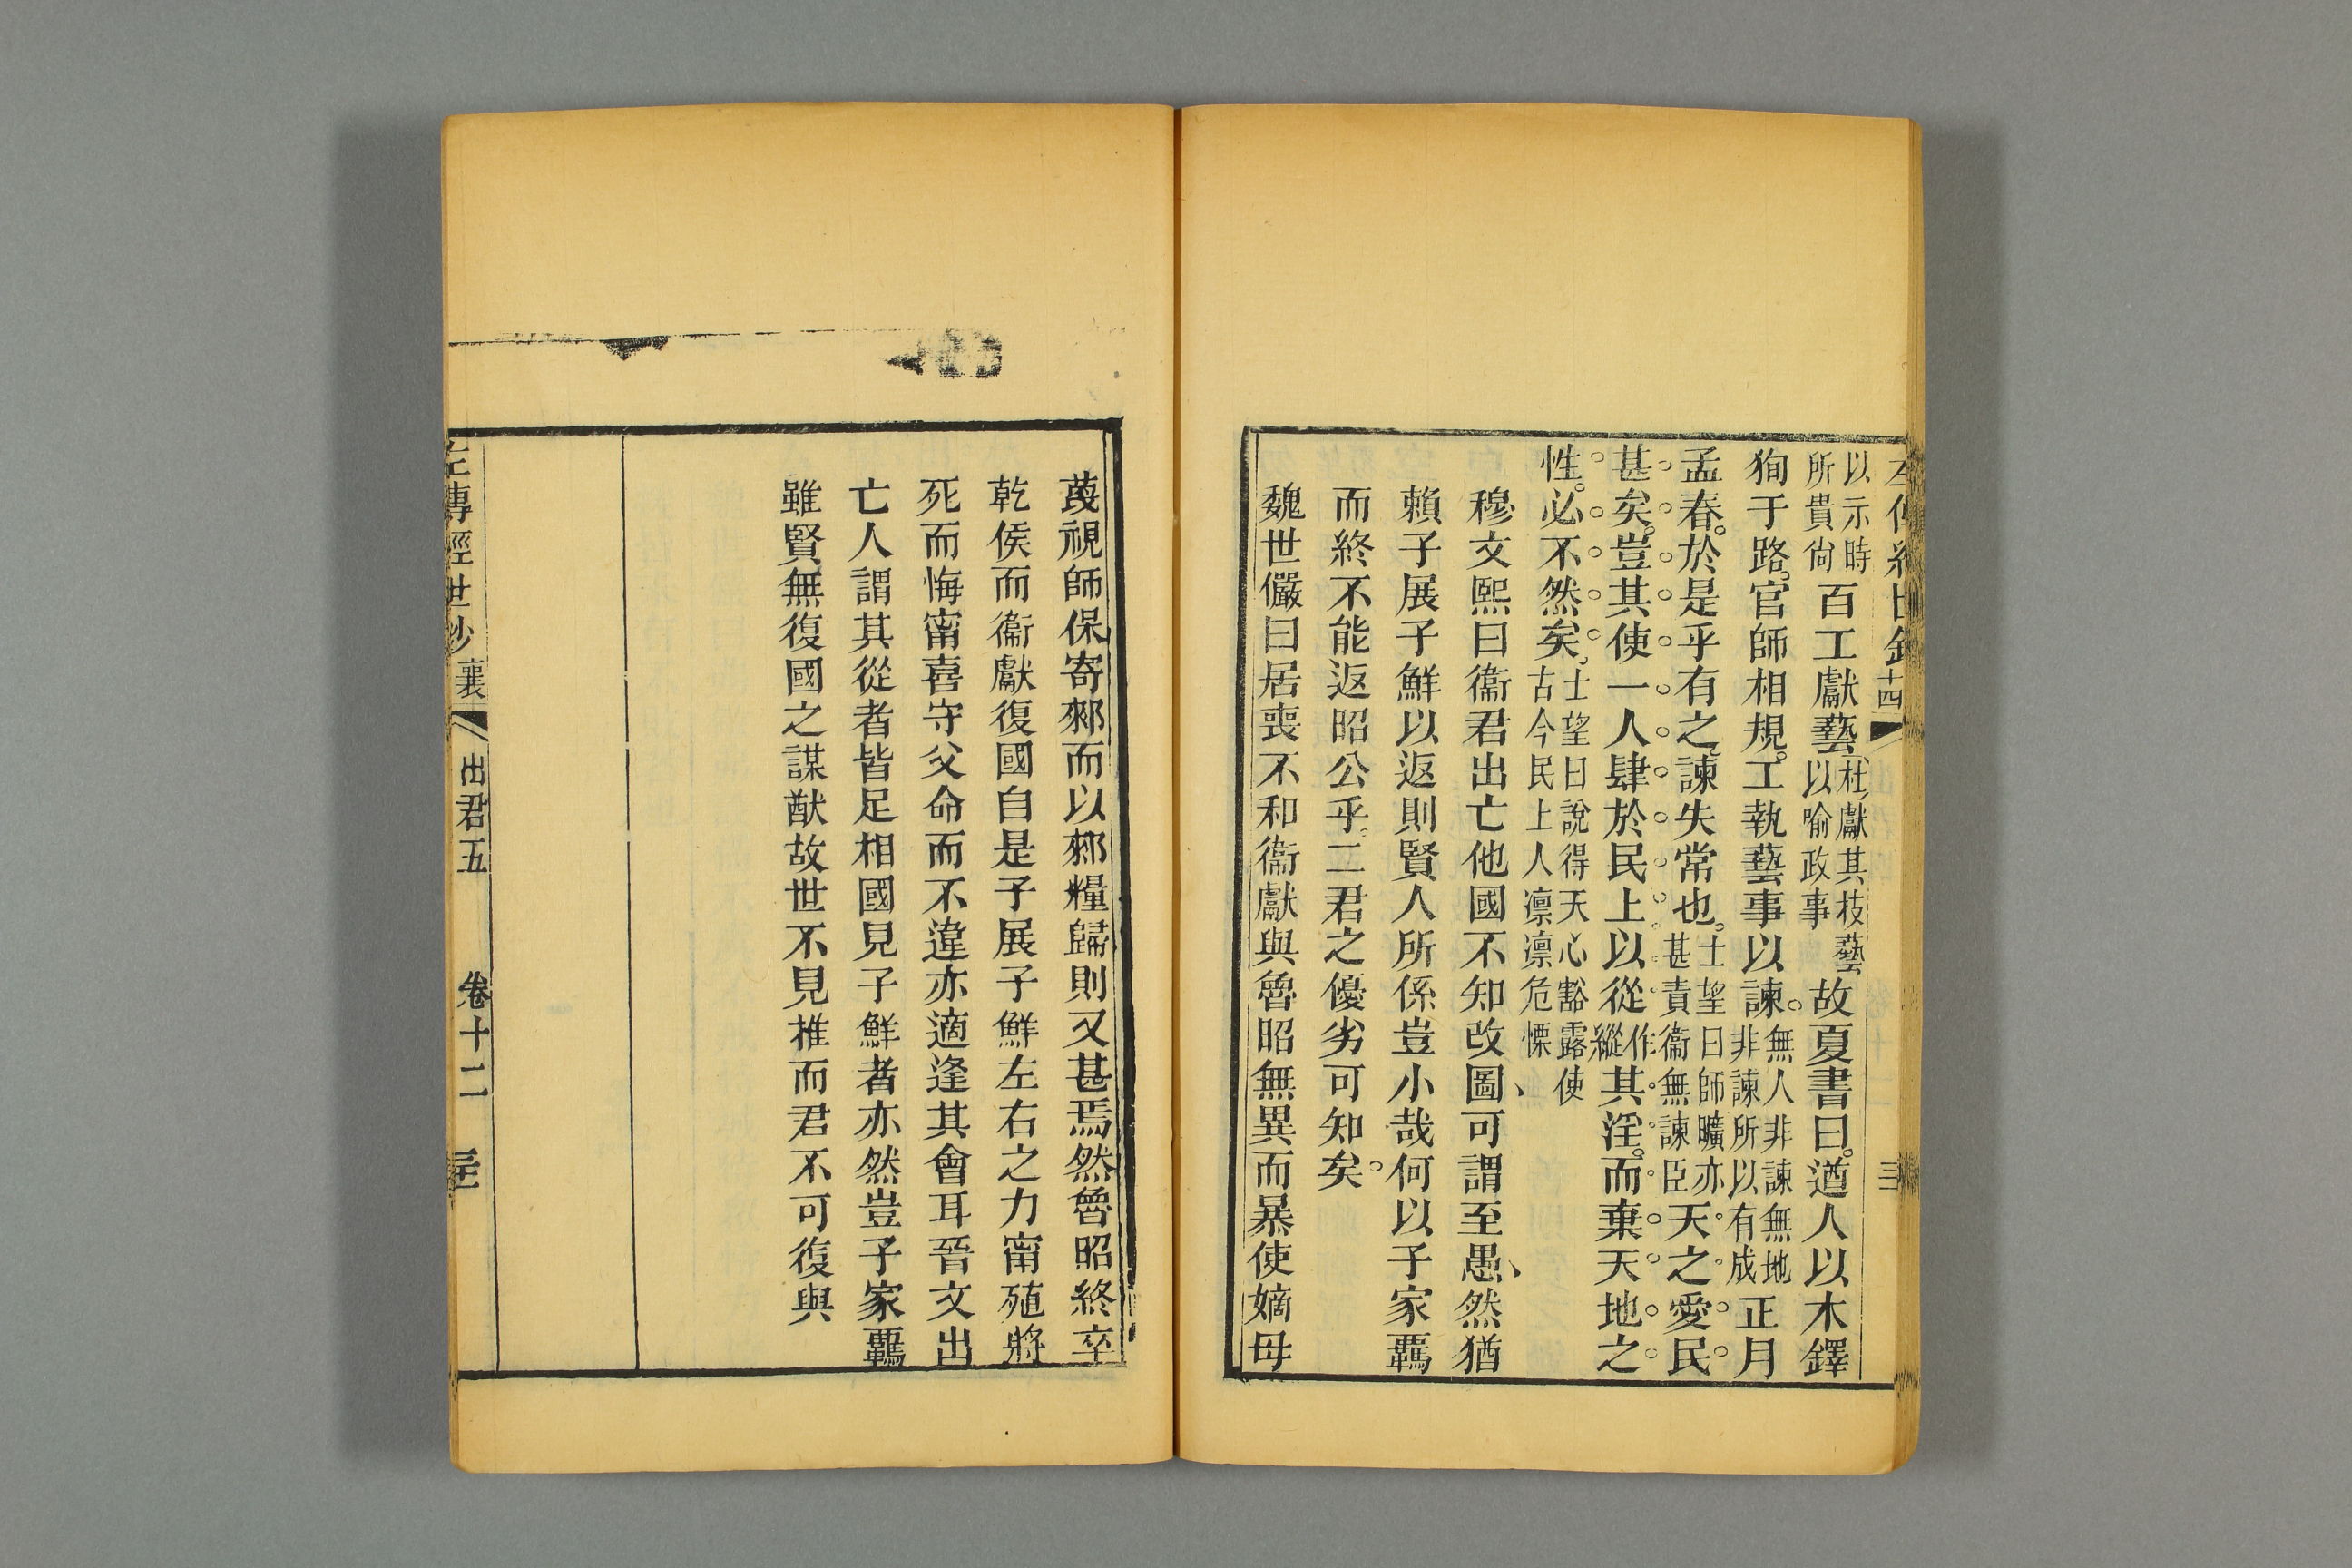 左傳經世鈔 十四
以示時所貴尚百工獻藝杜獻其技藝以喻政事故夏書曰遒人以木鐸
狥于路官師相規工執藝事以諫無人非諫無地非諫所以有成正月
孟春於是乎有之諫失常也士望曰師曠亦甚責衞無諫臣天之愛民
甚矣豈其使一人肆於民上以從作縱其淫而棄天地之
性必不然矣士望曰說得天心豁露使古今民上人凛凛危慄
穆文熙曰衞君出亡他國不知改圖可謂至愚然猶
賴子展子鮮以返則賢人所係豈小哉何以子家覊
而終不能返昭公乎二君之優劣可知矣
魏世儼曰居喪不和衞獻與魯昭無異而暴使嫡母
蔑視師保寄郲而以郲糧歸則又甚焉然魯昭終卒
乾侯而衞獻復國自是子展子鮮左右之力甯殖將
死而悔甯喜守父命而不違亦適逢其會耳晉文出
亡人謂其從者皆足相國見子鮮者亦然豈子家覊
雖賢無復國之謀猷故世不見推而君不可復與
左傳經世鈔 襄 出君五 卷十二